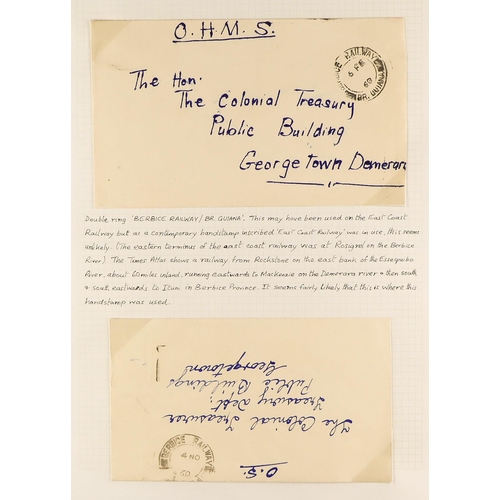 O.H.M.S.
The Hon.
The Colonial Treasury
Public Building
Georgetown Demerara
BERBICE RAILWAY
6 FE
BR. GUIANA
Double ring 'BERBICE RAILWAY/BR. GUIANA'. This may have been used on the East Coast
Railway but as a contemporary handstamp inscribed 'East Coast Railway' was in use, this seems
unlikely. (The eastern terminus of the east coast railway was at Rosignol on the Berbice
River). The Times Atlas shows a railway from Rockstone on the east bank of the Essequibo
River, about 60 miles inland, running eastwards to Mackenzie on the Demerara river & then south
& south eastwards to Ituni in Berbice Province. It seems fairly likely that this is where this
handstamp was used.
O.S.
The Colonial Treasurer
Treasury Dept:
Public Buildings
Georgetown
BERBICE RAILWAY
4 NO